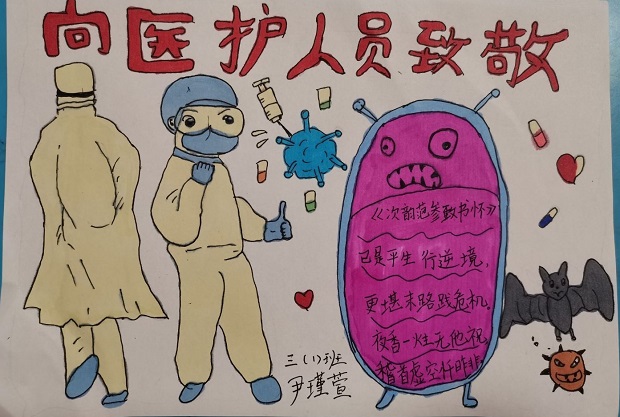 向医护人员致敬
《次韵范参政书怀》
已是平生行逆境，
更堪末路践危机，
夜香一炷无他祝，
稽首虚空忏昨非
三(1)班
尹瑾萱